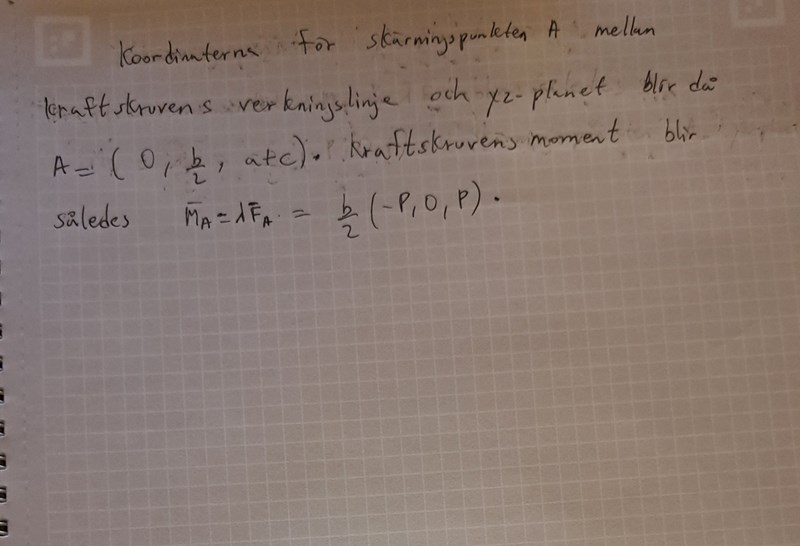 Koordinaterna för skärningspunkten A mellan
kraftskruvens verkningslinje och yz-planet blir då
A = (0, b/2, a+c). Kraftskruvens moment blir
således M̄_A = λF̄_A = b/2 (-P, 0, P).